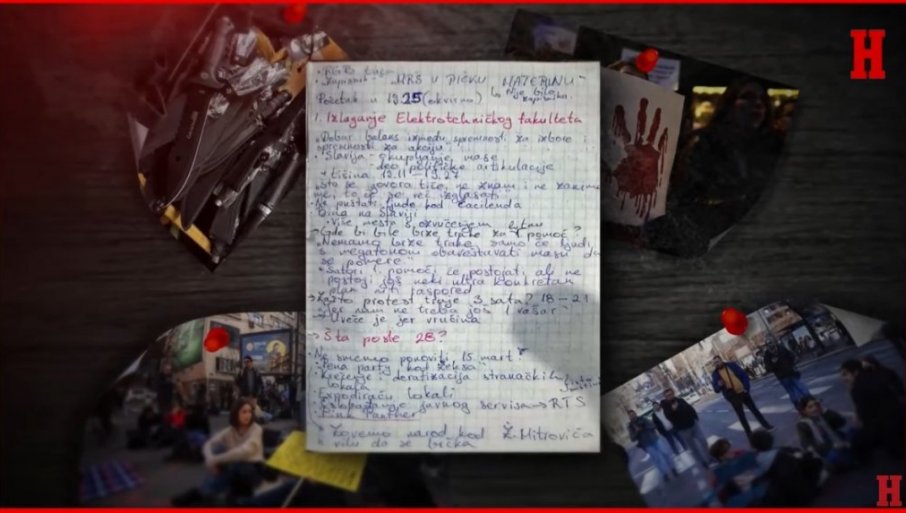 H
"MRŠ U PIČKU MATERINU"
Početak u 19:25 (okvirno) ↳ Nije bilo zapisnika.
1. Izlaganje Elektrotehničkog fakulteta
• Dobar balans između spremnosti za izbore i
spremnosti za akciju
• Slavija - skupljanje mase
- deo političke artikulacije
• tišina
što se govora tiče, ne znam i ne zanima
me, to će
Ne puštati ljude kod Ćacilenda
Bina na Slaviji
• Više mesta s ozvučenjem bitnu
→ Gde bi bile brze trake za 1 pomoć?
"Nemamo brze trake samo će ljudi
s megafonom obaveštavati masu da
se pomere"
• Šatori 1. pomoći će postojati, ali ne
postoji još neki ultra konkretan
plan niti raspored
→ Zašto protest traje 3 sata? 18-21
Jer nam ne treba još 1 vašar"
Uveče je jer vrućina
→ Šta posle 28?
Ne smemo ponoviti 15. mart"
"Pena party kod Šekša"
• Krečenje i deratizacija stranačkih
lokala
lokali
javnog servisa → RTS
Pink Panther
Zovemo narod kod Ž. Mitrovića
vilu da se brčka
H